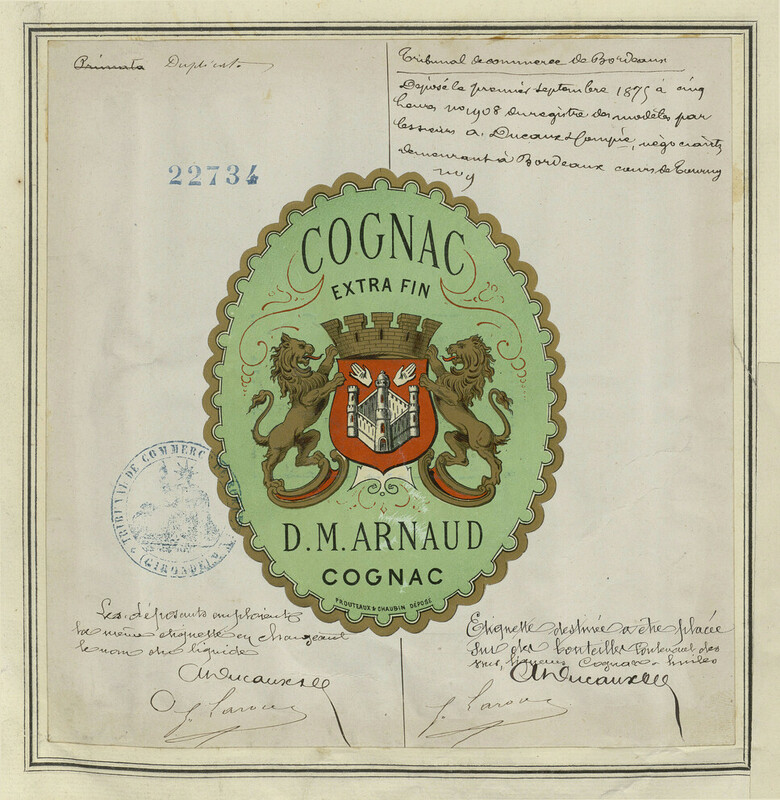 Primata Duplicata
Tribunal de commerce de Bordeaux
Déposé le premier septembre 1875 à cinq
heures no 1908 du registre des modèles par
les sieurs A. Ducaux & Compie, négociants
demeurant à Bordeaux cours de Tourny
no 9
22734
COGNAC
EXTRA FIN
TRIBUNAL DE COMMERCE
(GIRONDE)
D. M. ARNAUD
COGNAC
PROUTEAUX & CHAUBIN DÉPOSÉ
Les déposants emploient
la même étiquette en changeant
le nom du liquide
Etiquette destinée à être placée
sur des bouteilles contenant des
vins, liqueurs Cognac - huiles